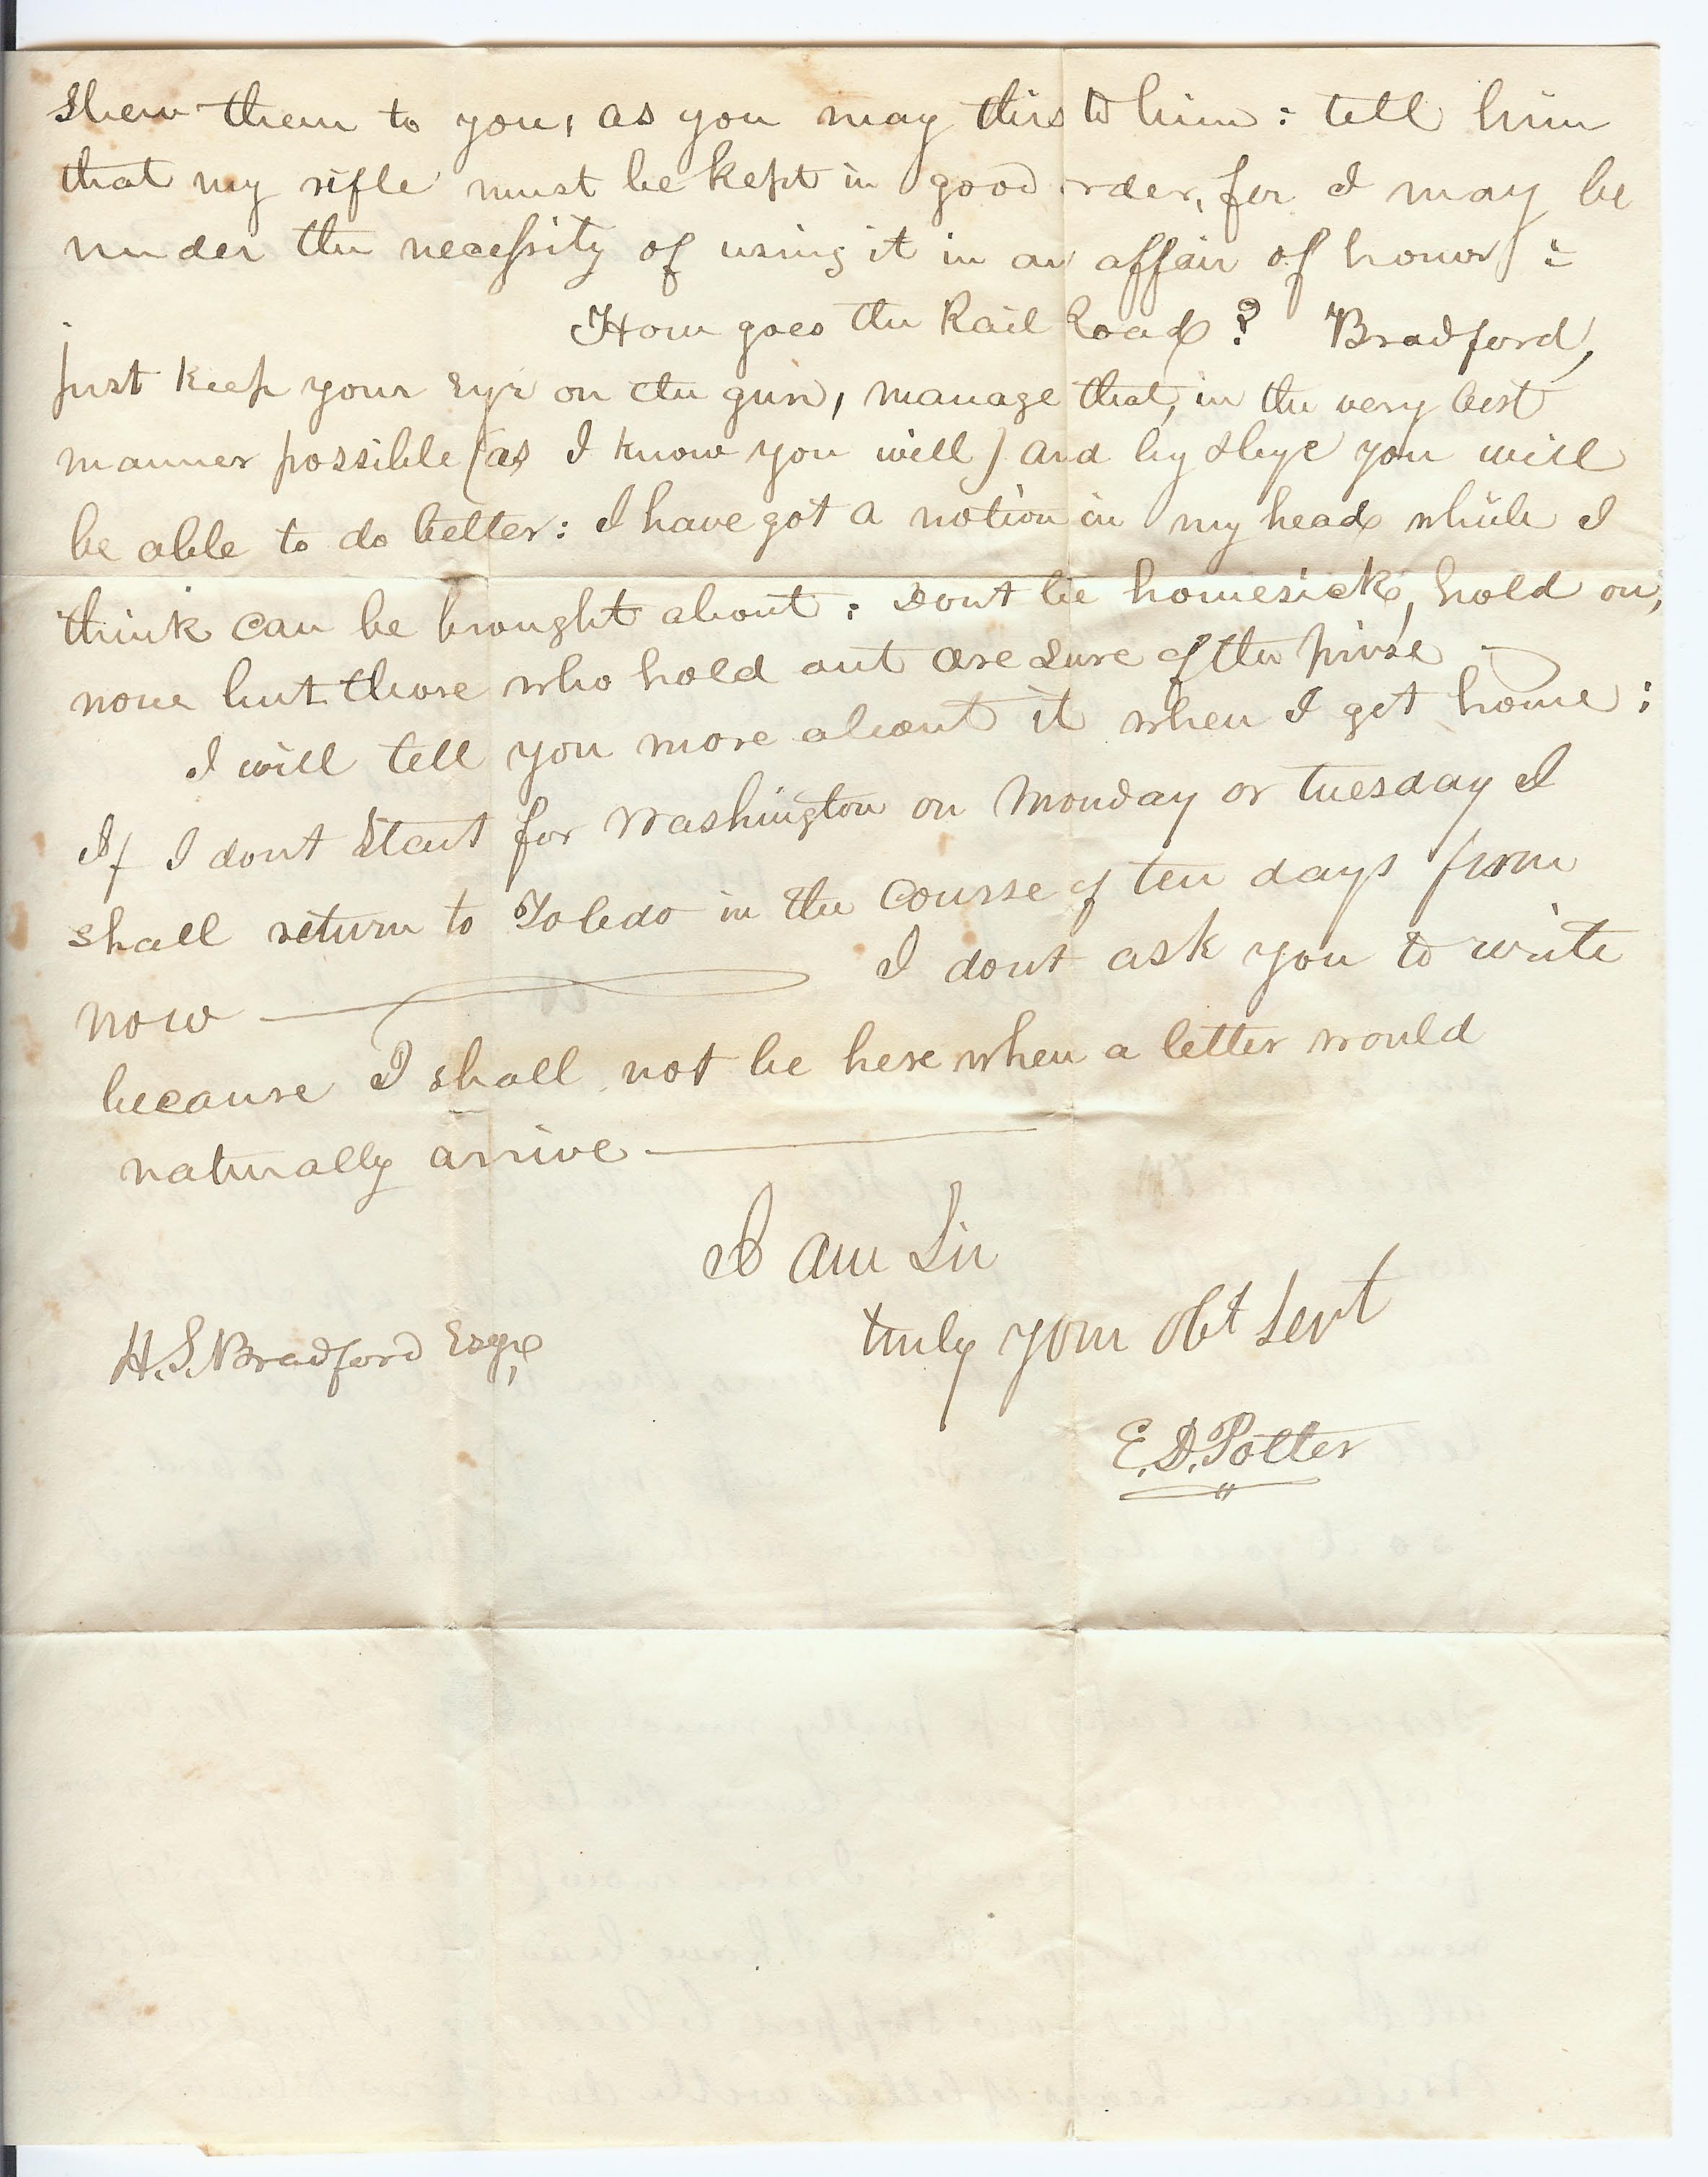 shew them to you, as you may this to him : tell him
that my rifle must be kept in good order, for I may be
under the necessity of using it in an affair of honor :
How goes the Rail Road ? Bradford,
just keep your eye on the gun, manage that, in the very best
manner possible (as I know you will) and by & bye you will
be able to do better : I have got a notion in my head while I
think can be brought about : Dont be homesick, hold on,
none but those who hold out are sure of the prize
I will tell you more about it when I get home :
If I dont start for Washington on Monday or Tuesday I
shall return to Toledo in the course of ten days from
now — I dont ask you to write
because I shall not be here when a letter would
naturally arrive —
I am Sir
truly your obt Servt
H. S. Bradford Esqr,
E. D. Potter